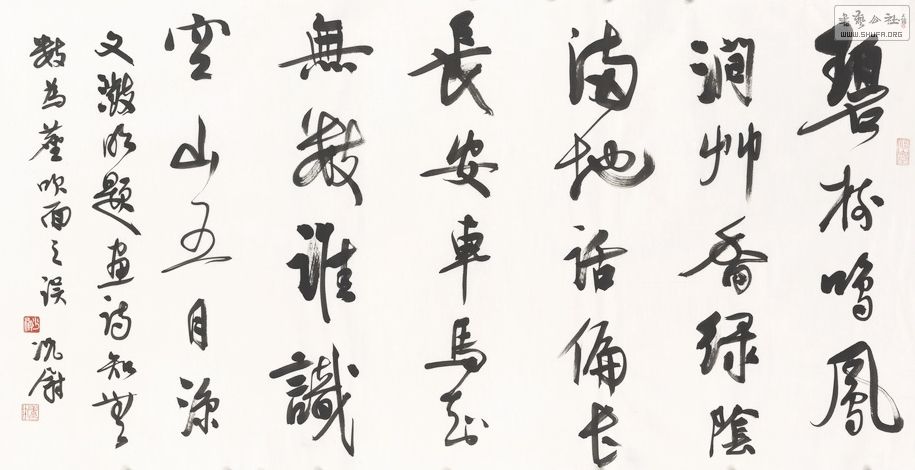 碧樹鳴鳳
澗艸香綠陰
滿地話偏長
長安車馬知
無數誰識
空山五月涼
文徵明題畫詩知無
數為塵吹面之誤 沈尉
書藝公社
WWW.SHUFA.ORG